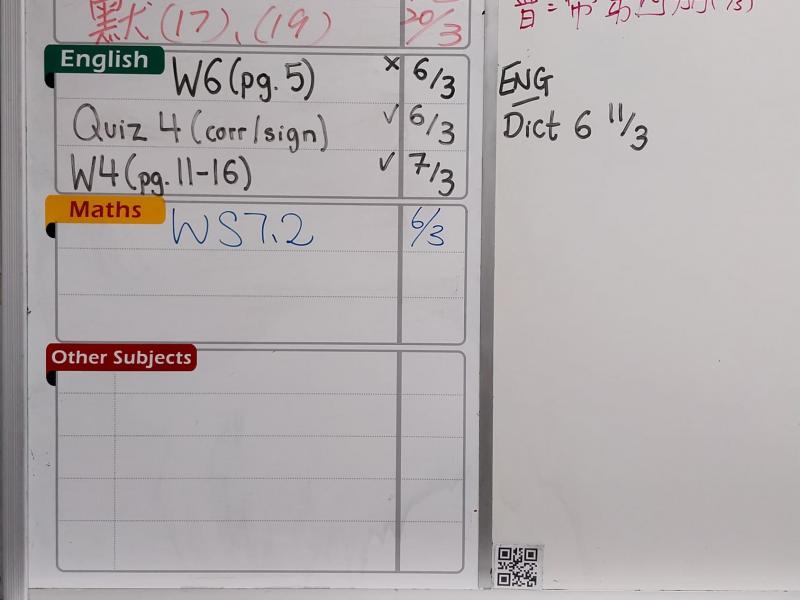 默(17)、(19) 20/3
English
W6(pg.5) × 6/3
Quiz 4 (corr/sign) ✓ 6/3
W4(pg.11-16) ✓ 7/3
Maths
WS7.2 6/3
Other Subjects
ENG
Dict 6 11/3